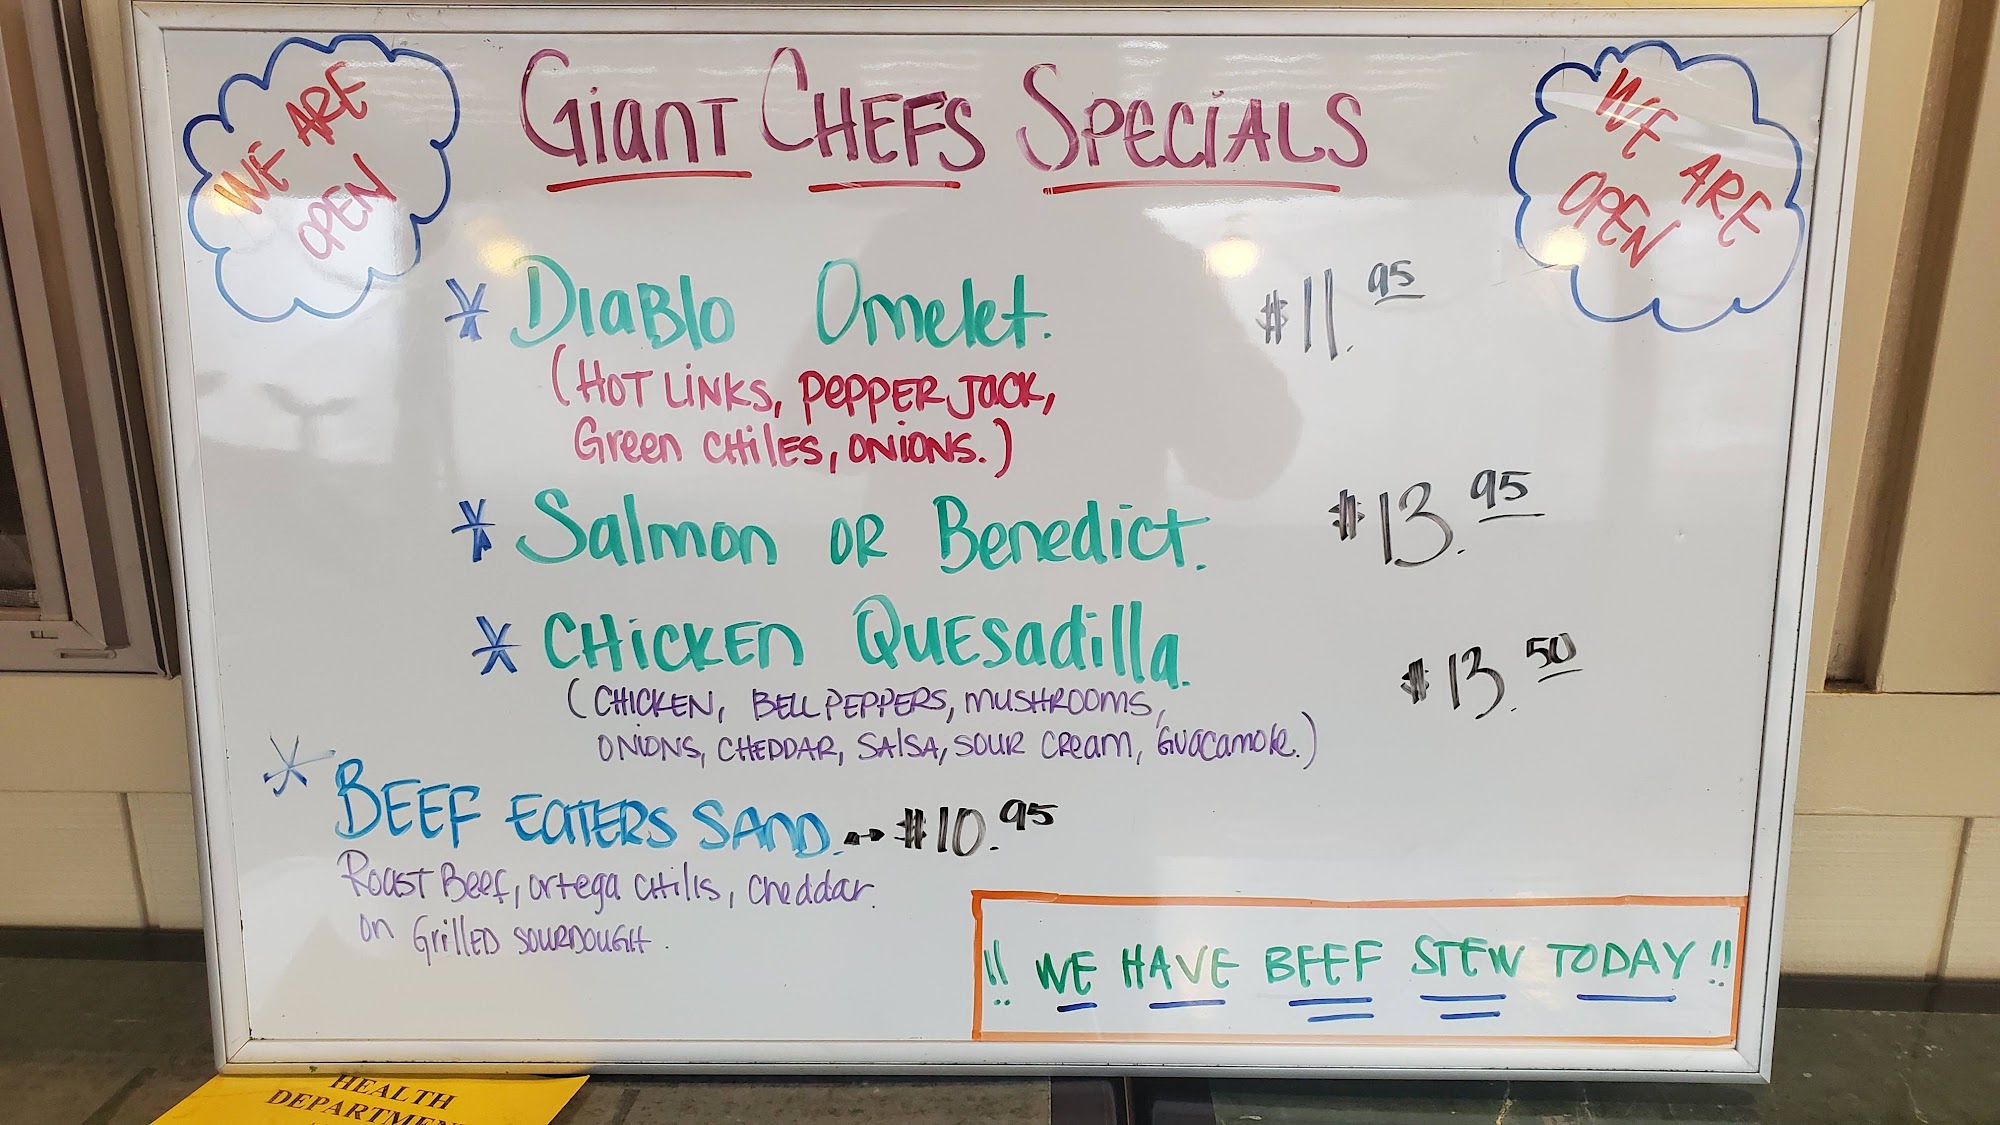 WE ARE
OPEN
GiANT CHEF'S SPECiALS
WE ARE
OPEN
* DiaBlo Omelet. $11.95
(HOT LiNKS, PEPPER JACK,
Green CHiLES, ONiONS.)
* Salmon OR Benedict. $13.95
* CHiCKEN QUESadilla. $13.50
(CHiCKEN, BELL PEPPERS, MUSHROOMS,
ONiONS, CHEDDAR, SALSA, SOUR CREAM, Guacamole.)
* BEEF EATERS SAND. → $10.95
ROAST BEEF, ortega CHilis, Cheddar.
on GrillED SOURDOUGH.
!! WE HAVE BEEF STEW TODAY !!
HEALTH